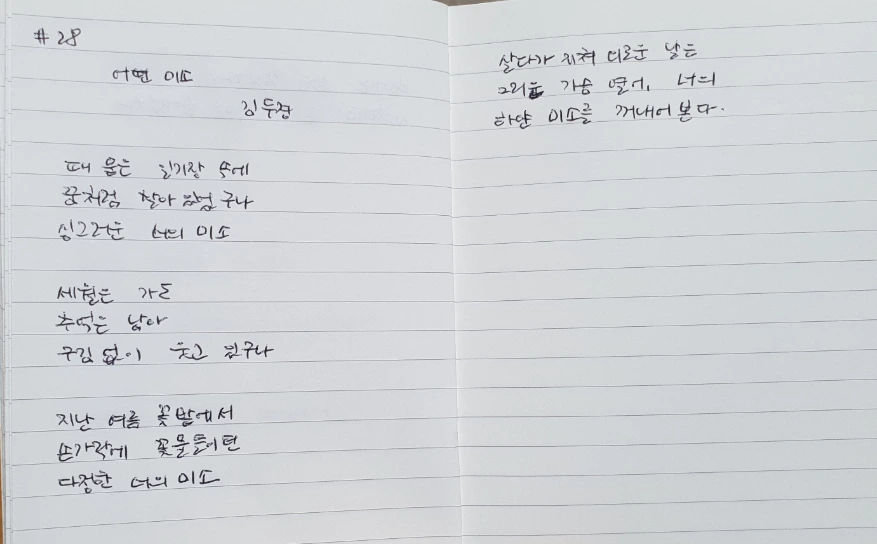 #28
어떤 미소
김두전
때 묻은 일기장 속에
꿈처럼 찾아 있었구나
싱그러운 너의 미소
세월은 가도
추억은 남아
구김 없이 웃고 있구나
지난 여름 꽃밭에서
손가락에 꽃물들이던
다정한 너의 미소
살다가 지쳐 외로운 날은
가슴 열어, 너의
하얀 미소를 꺼내어 본다.